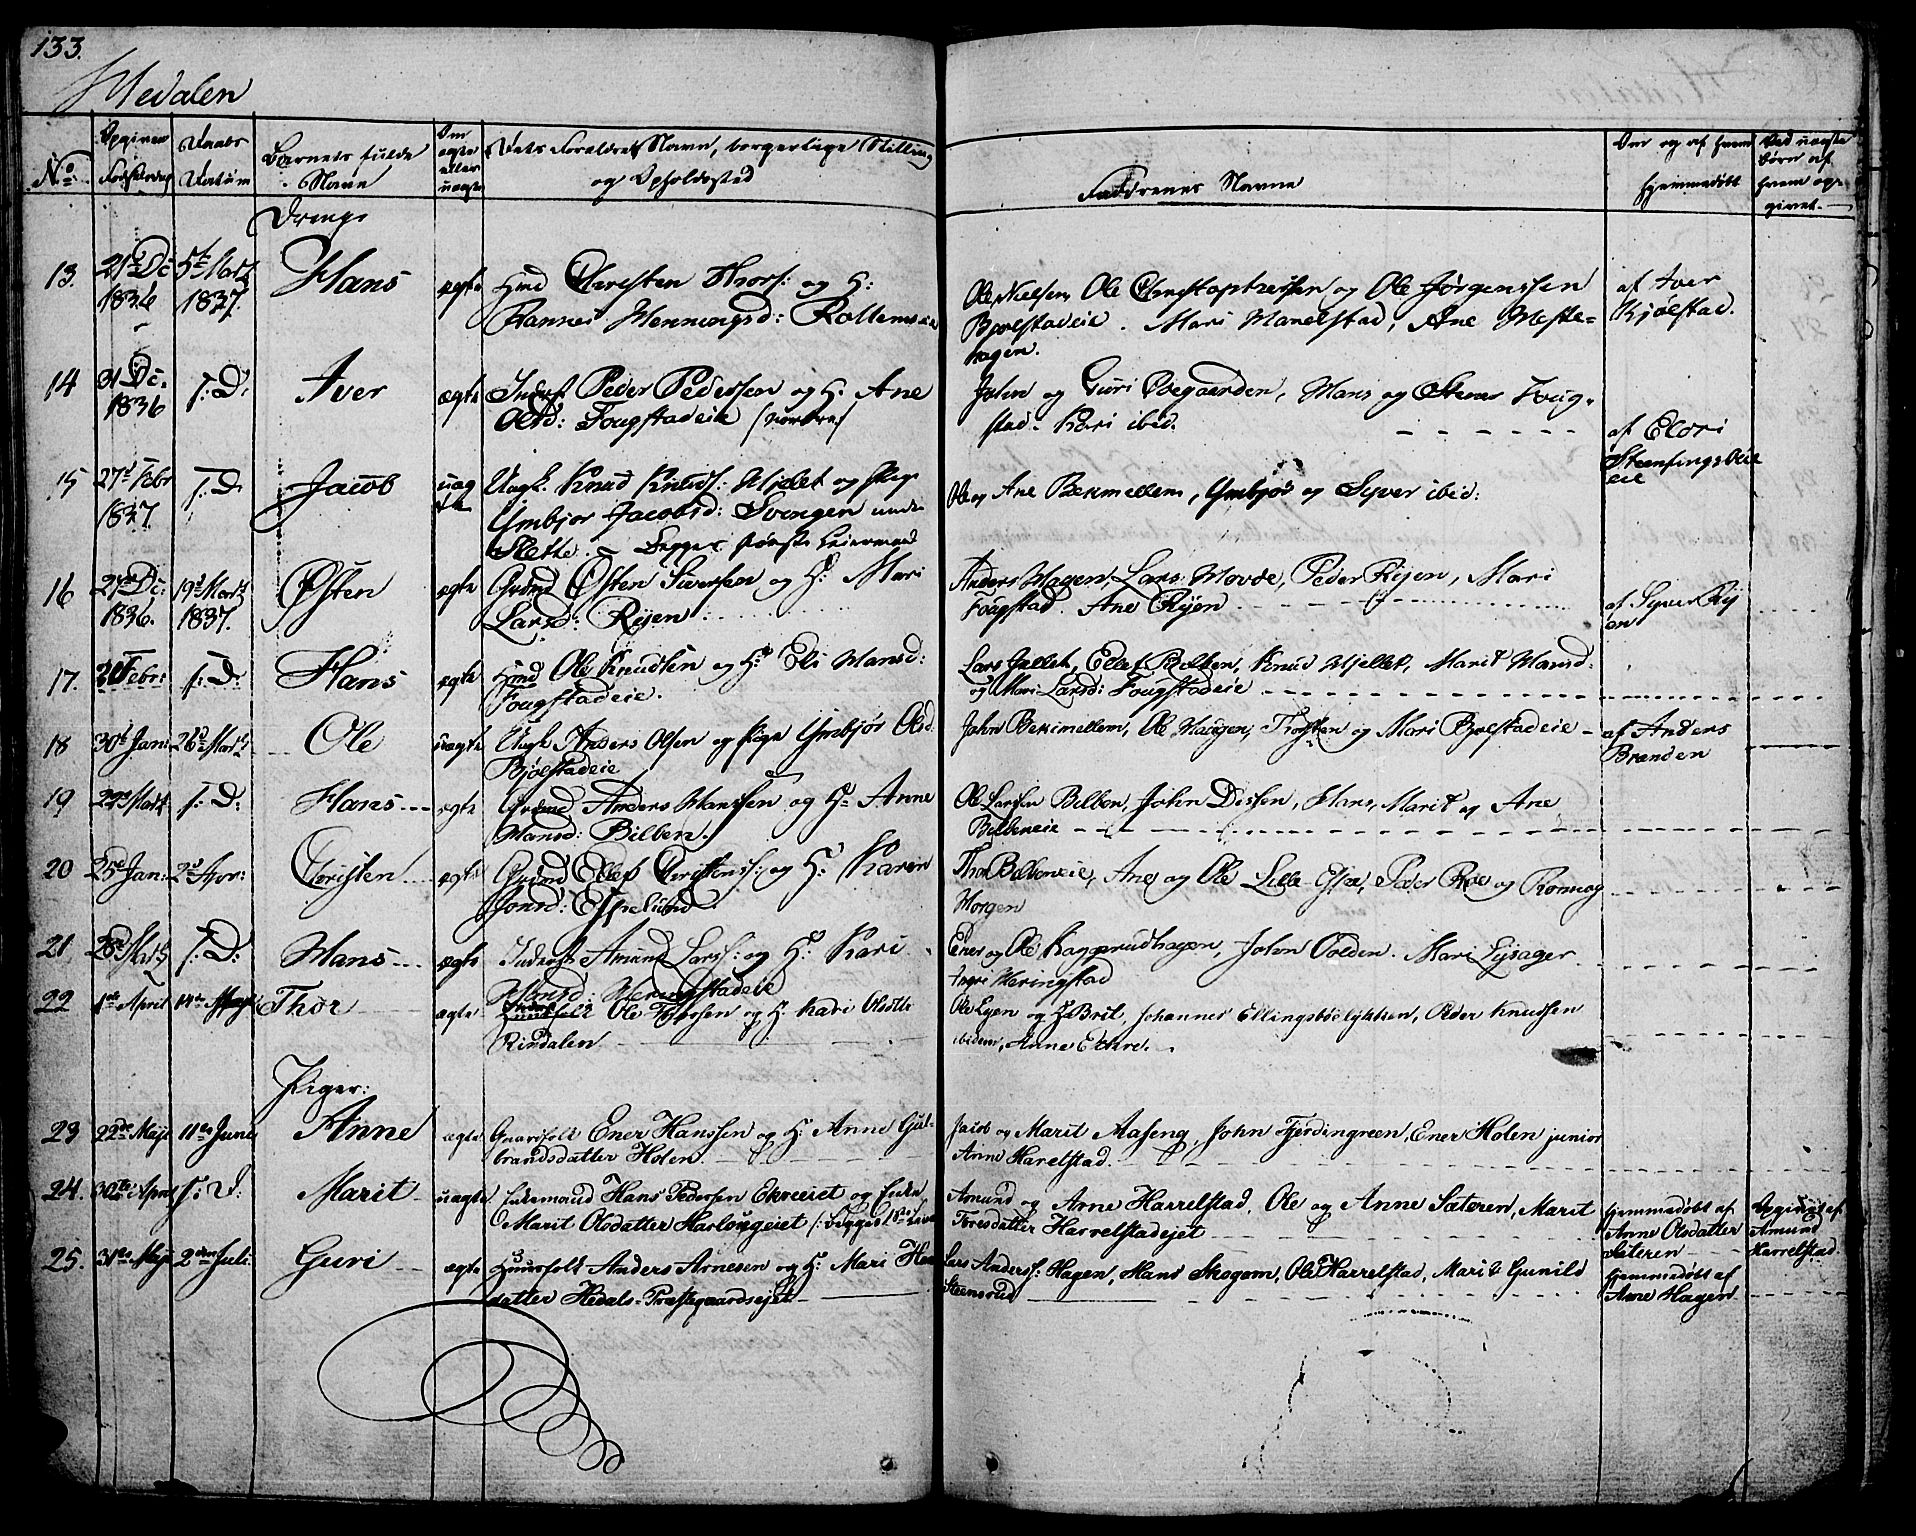 133.
Hedalen
No
Opgiven Fødselsdag
Daabs Datum
Barnets fulde Navn
Om ægte eller uægte
Dets Forældres Navn, borgerlige Stilling og Opholdssted
Faddrenes Navne
Om og af hvem hjemmedøbt
Ved uægte børn af hvem opgivet
Drenge
13. 21de Dec 1836 5te Marts 1837. Hans ægte Hmd Christen Thors: og H:
Hannes Henningsd: Rollem
Ole Nielsen, Ole Christophersen og Ole Jørgenssen
Bjølstadeie. Mari Haverstad, Ane
hagen.
af Iver
Kjølstad.
14 31 Dec. 1836 s: D: Iver ægte Inderst Peder Pederssen og H: Ane
Olsd: Fougstadeie /nordre/
John og Guri Øvegaarden, Hans og Stener Foug-
stad. Kari ibid.
af
15 27d Febr 1837. s: D Jacob uægte Ungk: Knud Knuds: Hjelet og Pige
Ymbjør Jacobsd: Svingen under
Slette. Begges første Leiermaal
Ole og Ane Bekimellem, Ymbjør og Syver ibid:
16 27de Dec: 1836. 19d Marts 1837. Østen ægte Grdmd Østen Siversen og H: Mari
Larsd: Rijen
Anders Hagen, Lars Hovde, Peder Rijen, Mari
Fougstad. Ane Rijen
af Syver Rij
en
17. 20 Febr: s: D: Hans ægte Hmd Ole Knudsen og H: Eli Hansd:
Fougstadeie.
Lars Jellet, Knud Hjellet, Marit Hansd:
og Mari Larsd: Fougstadeie
18 30te Jan: 26de Marts Ole uægte Ungk: Anders Olsen og Pige Ymbjør Olsd
Bjølstadeie
John Bekimellem, Ole Haugen, Thosten og Mari Bjølstadeie
af Anders
Brenden
19 Marts s: D: Hans ægte Grdmd Anders Hanssen og H: Anne
Hansd: Bilben.
Ole Larssen Bilben, John Dissen, Hans, Marit og Ane
Bilbeneie
20 Jan: 2d Apr: Christen ægte Grdmd Ellef Christenss: og H: Karen
Jonsd: Espelund
Thor Bilbeneie, Ane og Ole Lille Peder Roe og
21. 28de Marts s: D: Hans ægte Inderst Amund Larss: og H: Kari
Hansd: Heringstadeie
Ener og Ole Kaggerudhagen, John Volden. Mari Lysager
Heringstad
22 1ste April 14de Maji Thor ægte Ole Thorsen og H: Kari Olsdtr
Rindalen
Ole Eijen og H: Brit, Johannes Ellingsbøelykken, Peder Knudsen
ibidem, Anne Ekkre.
Piger:
23 22de Maji 11te Junii Anne ægte Gaardfolk Ener Hanssen og H: Anne Gul-
brandsdatter Holen.
Jacob og Marit Aaseng, John Fjerdingreen, Ener Holen junior
Anne Harelstad.
24. 30te April s: D: Marit uægte Enkemand Hans Pedersen Ekreeiet og Enke
Marit Olsdatter Haslougeiet /: begges 1ste
Amund og Arne Harrelstad, Ole og Anne Sæteren, Marit
Toresdatter Harrelstadejet
hjemmedøbt af
Anne Olsdatter
Sæteren
Opgivet af
Amund
Harrelstad.
25. 31te Maji 2den Juli. Guri ægte Huusfolk Anders Arnesen og H: Mari
datter Hedals-Præstegaardsejet
Lars Anderss: Hagen, Hans Skogom, Ole Harrelstad, Mari & Gunild
Steensrud
hjemmedøbt af
Arne Hagen